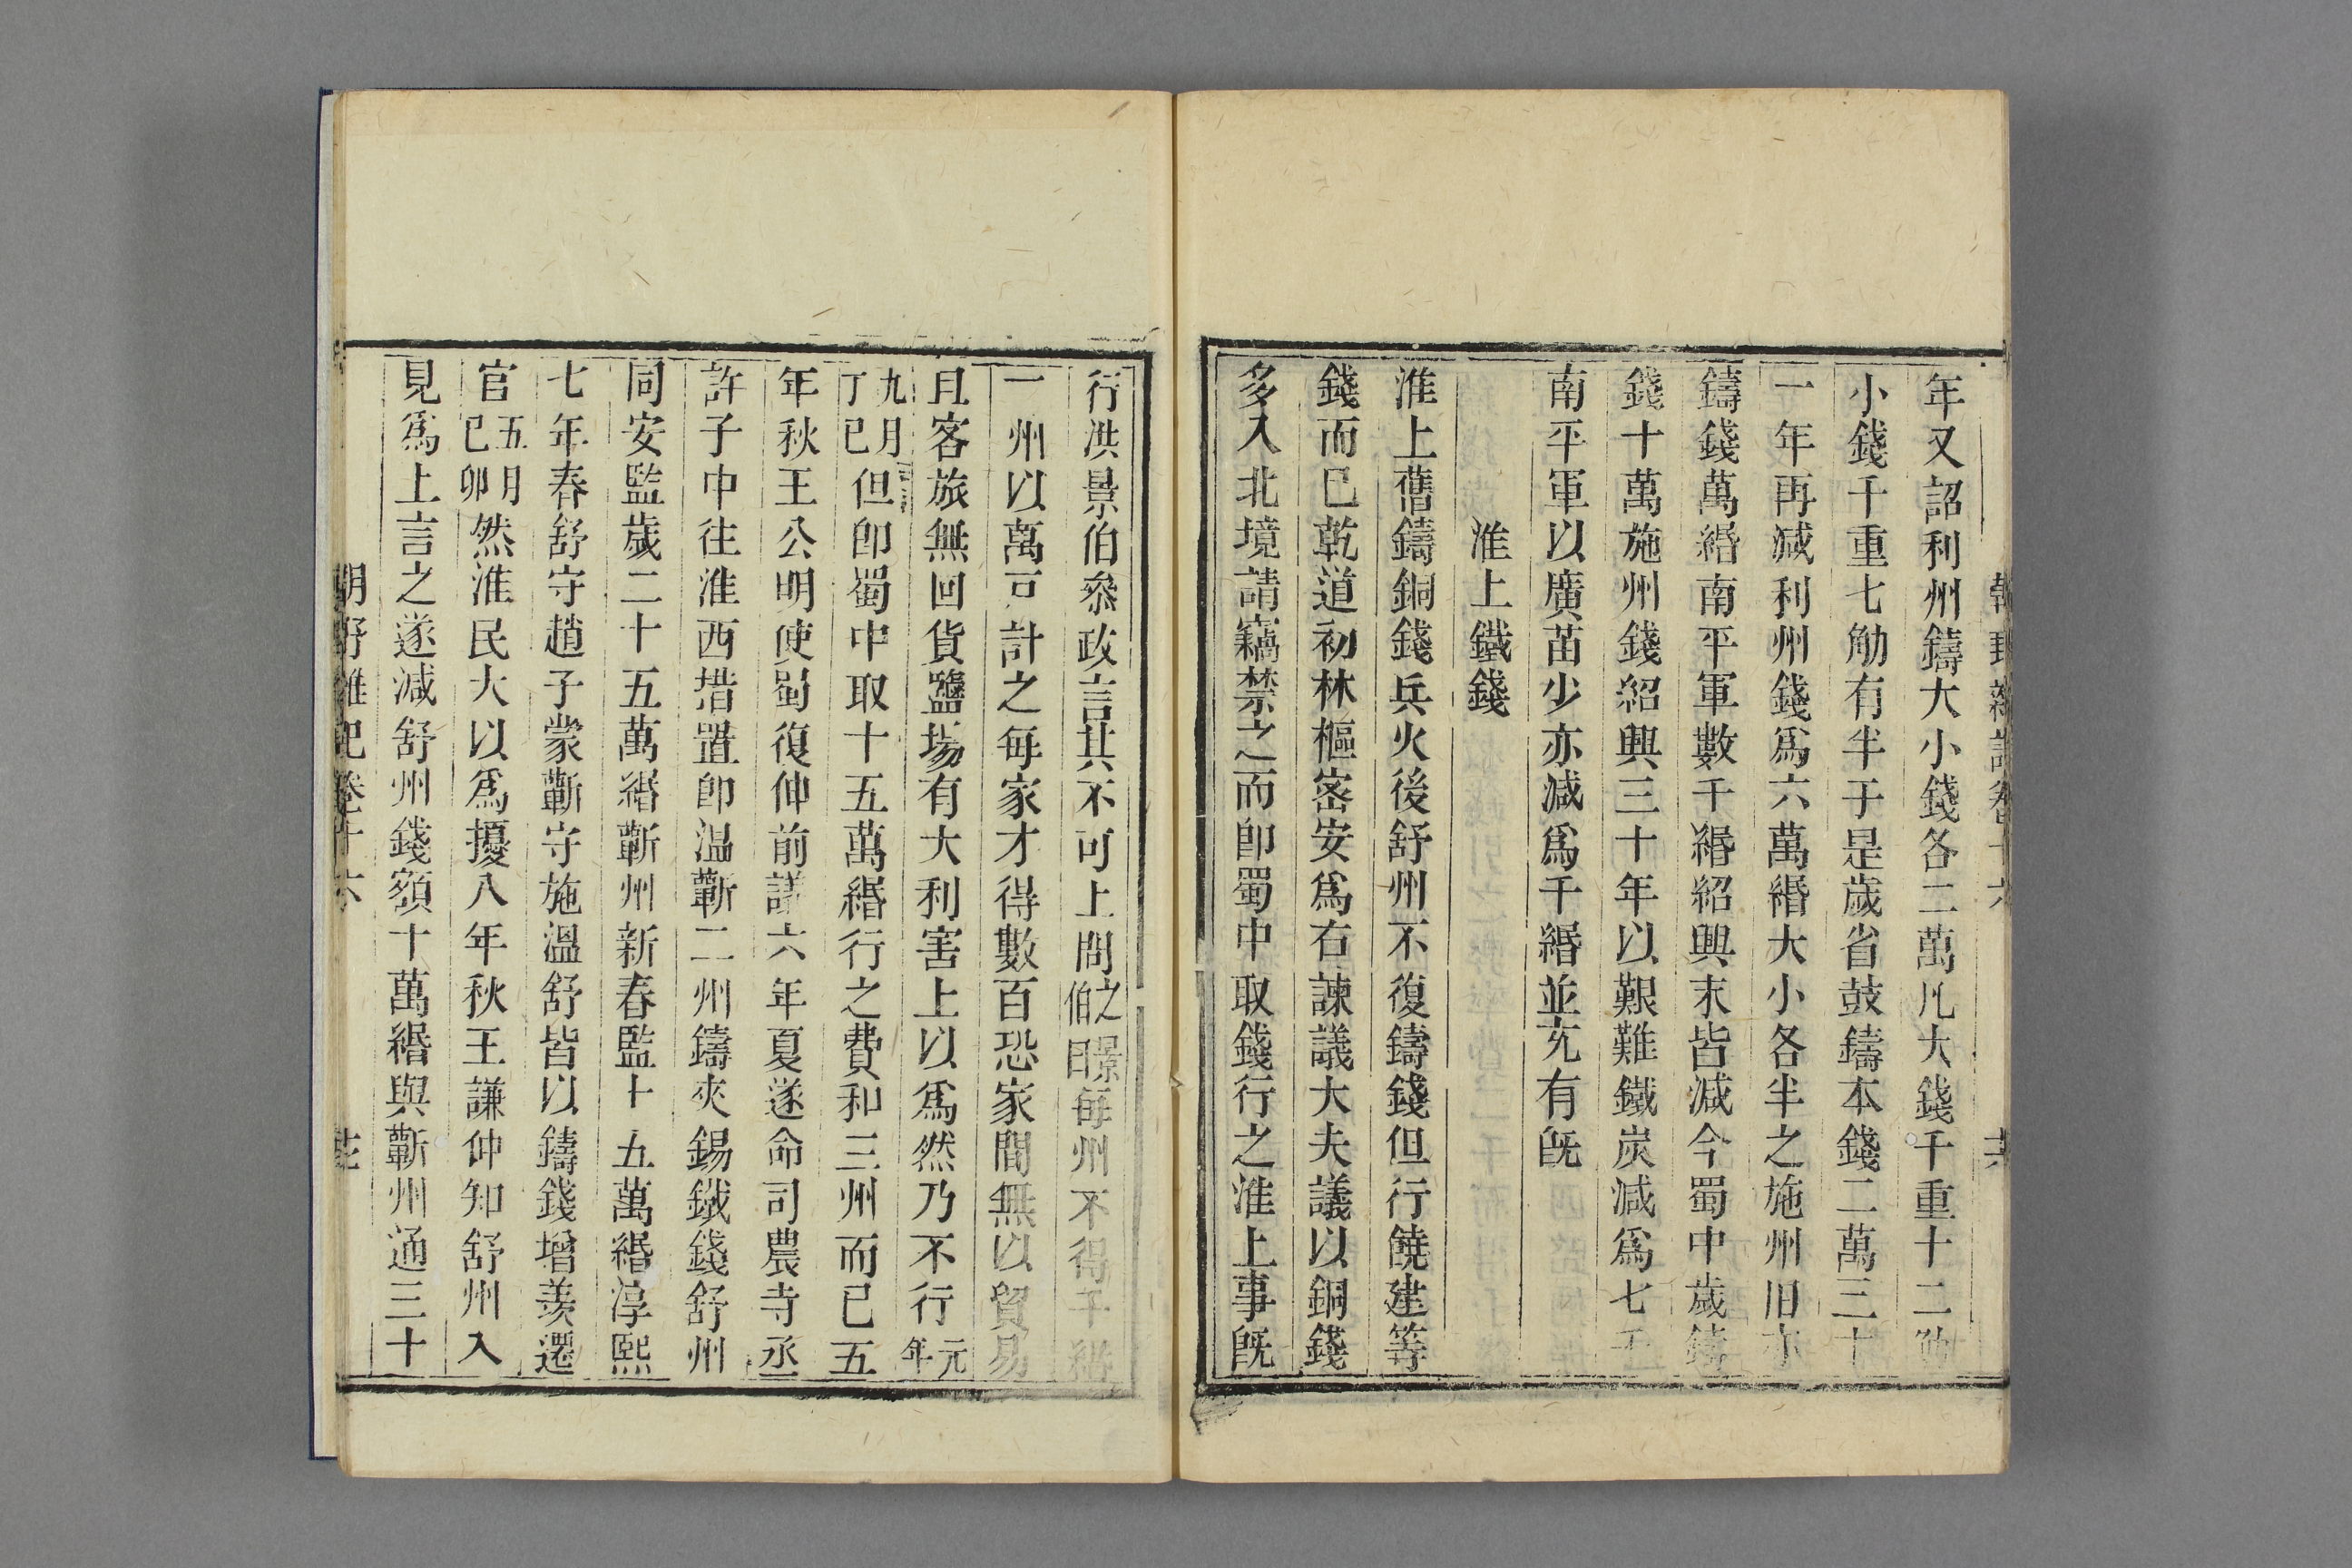 年又詔利州鑄大小錢各二萬凡大錢千重十二觔
小錢千重七觔有半于是歲省鼓鑄本錢二萬三十
一年再減利州錢爲六萬緡大小各半之施州旧亦
鑄錢萬緡南平軍數千緡紹興末皆減今蜀中歲鑄
錢十萬施州錢紹興三十年以艱難鐵炭減爲七千
南平軍以廣苗少亦減爲千緡並充有旣
淮上鐵錢
淮上舊鑄銅錢兵火後舒州不復鑄錢但行饒建等
錢而已乾道初林樞密安爲右諫議大夫議以銅錢
多入北境請竊禁之而卽蜀中取錢行之淮上事旣
行洪景伯叅政言其不可上問之景伯曰每州不得千緡
一州以萬戸計之每家才得數百恐家間無以貿易
且客旅無回貨鹽場有大利害上以爲然乃不行元年
九月丁巳但卽蜀中取十五萬緡行之費和三州而已五
年秋王公明使蜀復伸前議六年夏遂命司農寺丞
許子中往淮西措置卽温蘄二州鑄夾錫鐵錢舒州
同安監歲二十五萬緡蘄州新春監十五萬緡淳熙
七年春舒守趙子蒙蘄守施溫舒皆以鑄錢增羨遷
官五月己卯然淮民大以爲擾八年秋王謙仲知舒州入
見爲上言之遂減舒州錢額十萬緡與蘄州通三十
朝野雜記卷十六